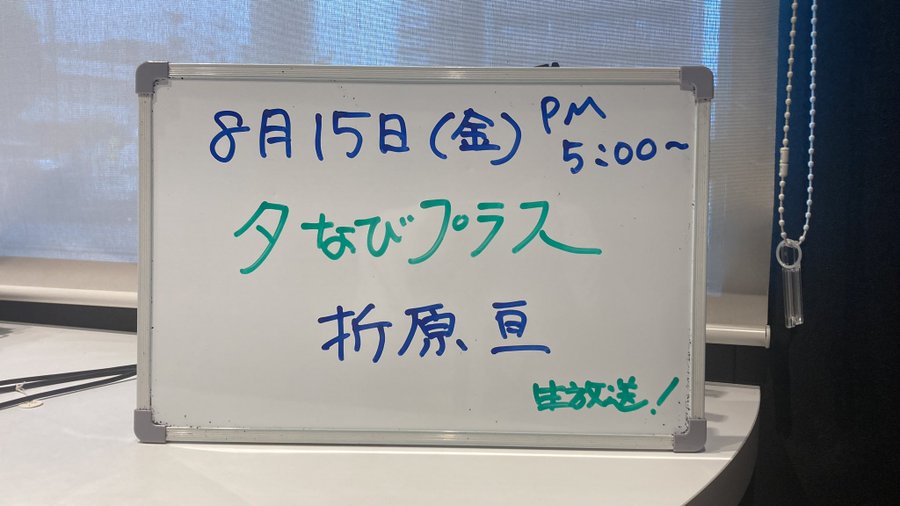 8月15日(金) PM 5:00~
夕なびプラス
折原亘
生放送!